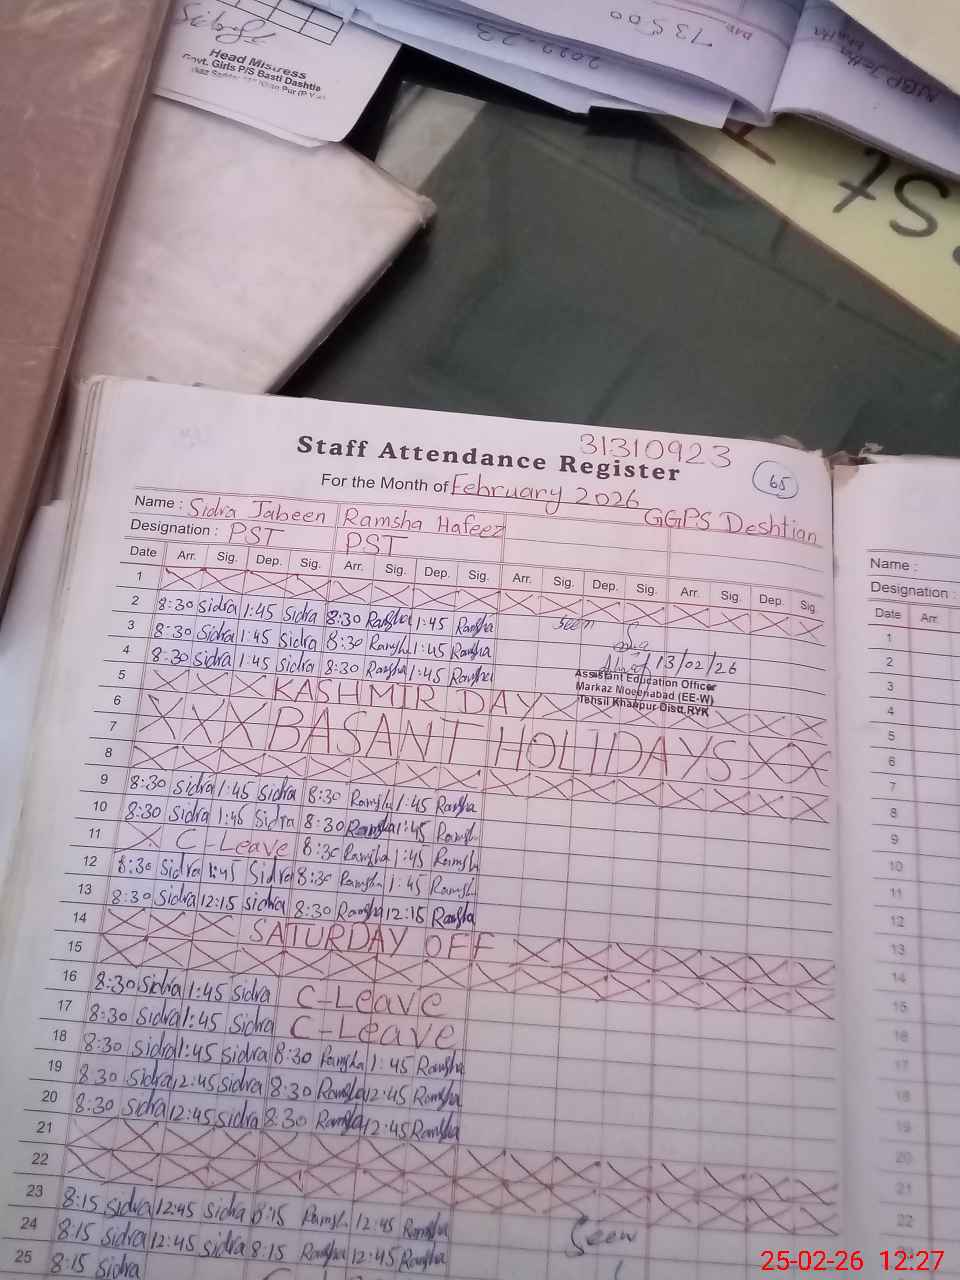 Head Mistress
Govt. Girls P/S Basti Dashtia
73500
2022-23
St
31310923
Staff Attendance Register
65
For the Month of February 2026
GGPS Deshtian
Name : Sidra Jabeen Ramsha Hafeez
Designation : PST PST
Date Arr. Sig. Dep. Sig. Arr. Sig. Dep. Sig. Arr. Sig. Dep. Sig. Arr. Sig. Dep. Sig.
1
2 8:30 Sidra 1:45 Sidra 8:30 Ramsha 1:45 Ramsha Seen
3 8:30 Sidra 1:45 Sidra 8:30 Ramsha 1:45 Ramsha
4 8:30 Sidra 1:45 Sidra 8:30 Ramsha 1:45 Ramsha 13/02/26
Assistant Education Officer
Markaz Moeenabad (EE-W)
Tehsil Khanpur Distt.RYK
5 KASHMIR DAY
6
7 BASANT HOLIDAYS
8
9 8:30 Sidra 1:45 Sidra 8:30 Ramsha 1:45 Ramsha
10 8:30 Sidra 1:45 Sidra 8:30 Ramsha 1:45 Ramsha
11 C-Leave 8:30 Ramsha 1:45 Ramsha
12 8:30 Sidra 1:45 Sidra 8:30 Ramsha 1:45 Ramsha
13 8:30 Sidra 12:15 Sidra 8:30 Ramsha 12:15 Ramsha
14 SATURDAY OFF
15
16 8:30 Sidra 1:45 Sidra C-Leave
17 8:30 Sidra 1:45 Sidra C-Leave
18 8:30 Sidra 1:45 Sidra 8:30 Ramsha 1:45 Ramsha
19 8:30 Sidra 12:45 Sidra 8:30 Ramsha 12:45 Ramsha
20 8:30 Sidra 12:45 Sidra 8:30 Ramsha 12:45 Ramsha
21
22
23 8:15 Sidra 12:45 Sidra 8:15 Ramsha 12:45 Ramsha
24 8:15 Sidra 12:45 Sidra 8:15 Ramsha 12:45 Ramsha Seen
25 8:15 Sidra
Name :
Designation :
Date Arr.
1
2
3
4
5
6
7
8
9
10
11
12
13
14
15
16
17
18
19
20
21
22
25-02-26 12:27